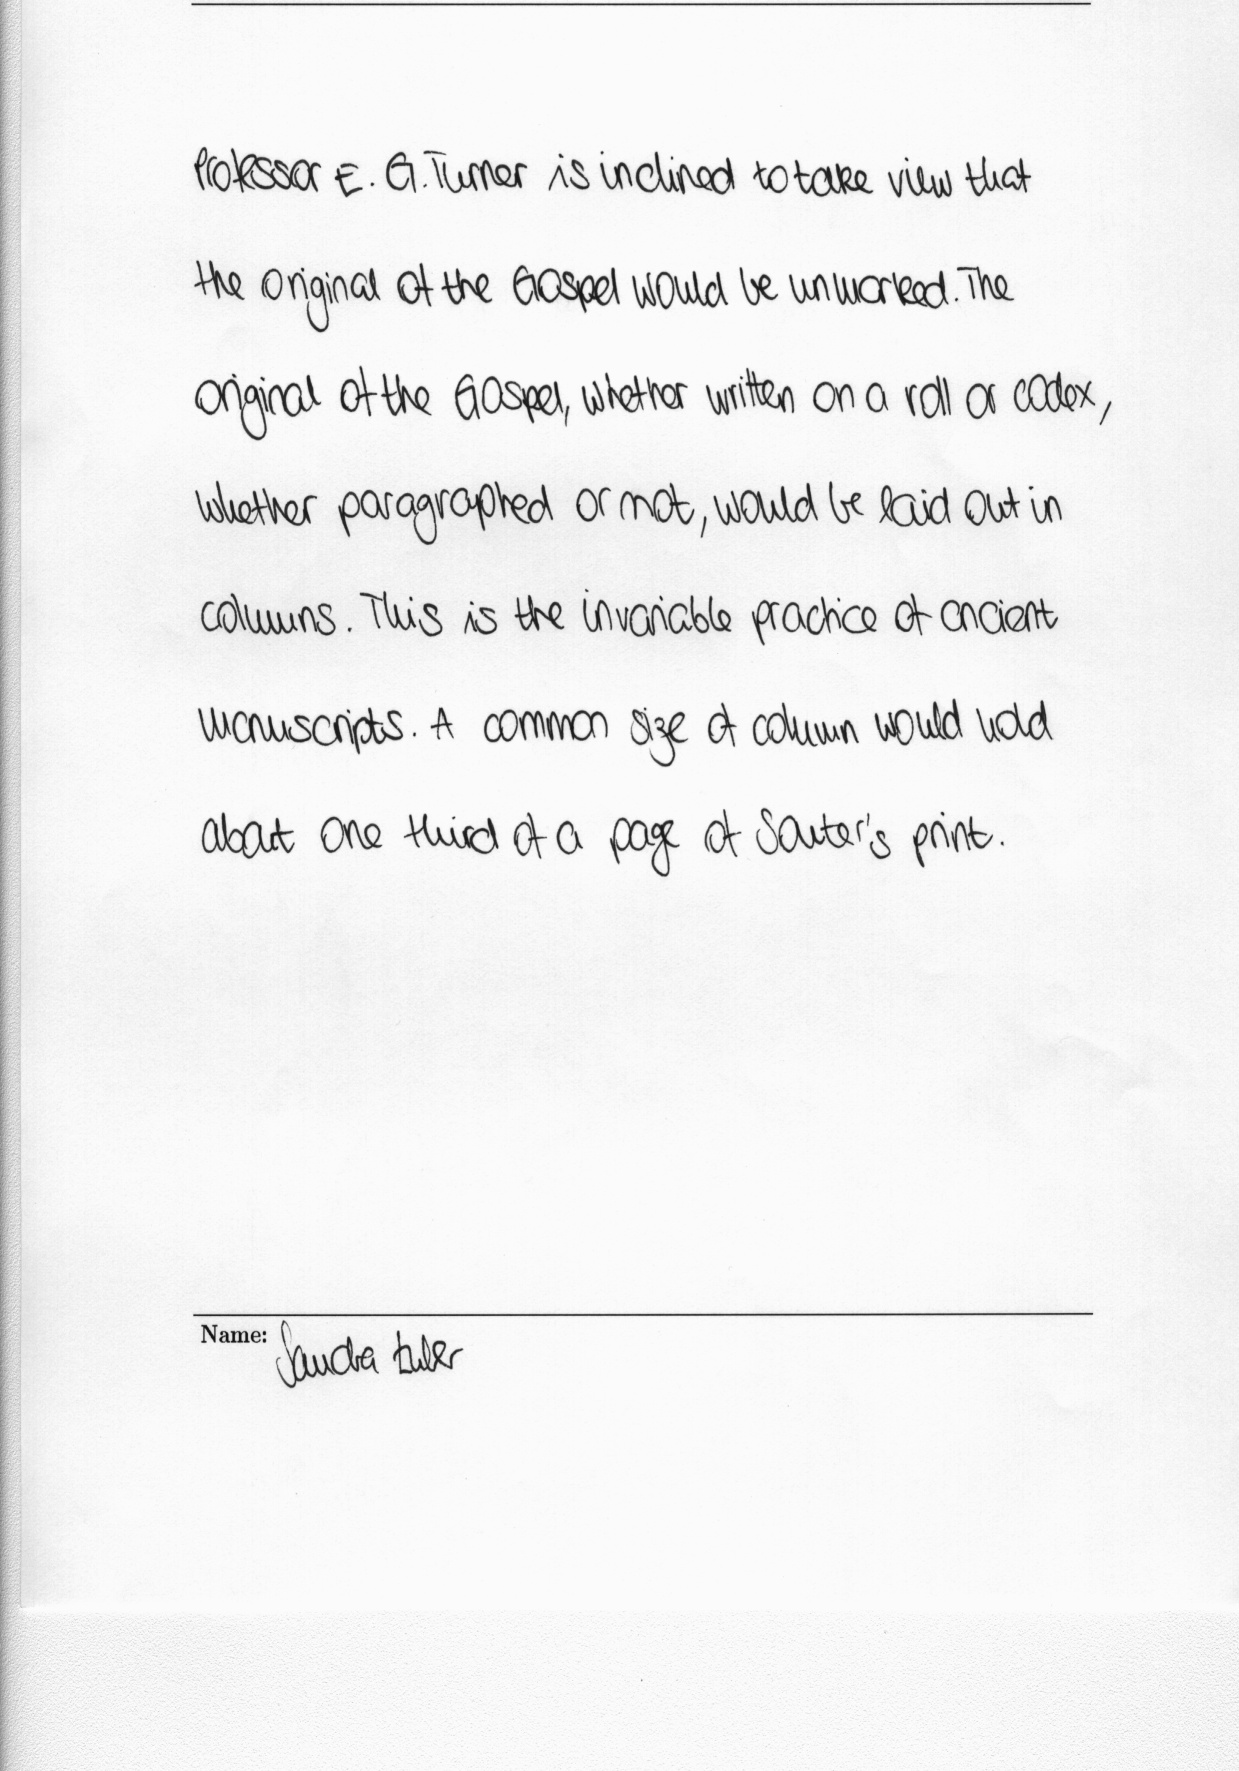 Professor E. G. Turner is inclined to take view that
the original of the Gospel would be unworked. The
original of the Gospel, whether written on a roll or codex,
whether paragraphed or not, would be laid out in
columns. This is the invariable practice of ancient
manuscripts. A common size of column would hold
about one third of a page of Souter's print.
Name: Sandra